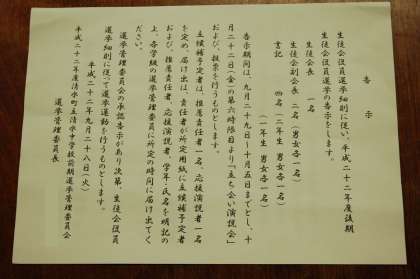 告示
生徒会役員選挙細則に従い、平成二十二年度後期
生徒会役員選挙の告示をします。
生徒会長 一名
生徒会副会長 二名（男女各一名）
書記 四名（二年生 男女各一名）
（一年生 男女各一名）
告示期間は、九月二十九日～十月五日までとし、十
月二十二日（金）の第六時限目より「立ち会い演説会」
および、投票を行うものとします。
立候補予定者は、推薦責任者一名、応援演説者一名
を定め、届け出は、責任者が所定用紙に立候補予定者
および、推薦責任者、応援演説者、学年・氏名を明記の
上、各学級の選挙管理委員に所定の時間に届け出てく
ださい。
選挙管理委員会の承認告示があり次第、生徒会役員
選挙細則に従って選挙運動を行うものとします。
平成二十二年九月二十八日（火）
平成二十二年度清水町立清水中学校前期選挙管理委員会
選挙管理委員長